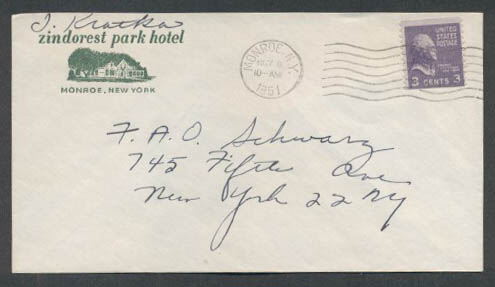 J. Kratka
zindorest park hotel
MONROE, NEW YORK
MONROE, N.Y.
NOV 6
10-AM
1951
UNITED
STATES
POSTAGE
3 CENTS 3
F. A. O. Schwarz
745 Fifth Ave
New York 22 NY